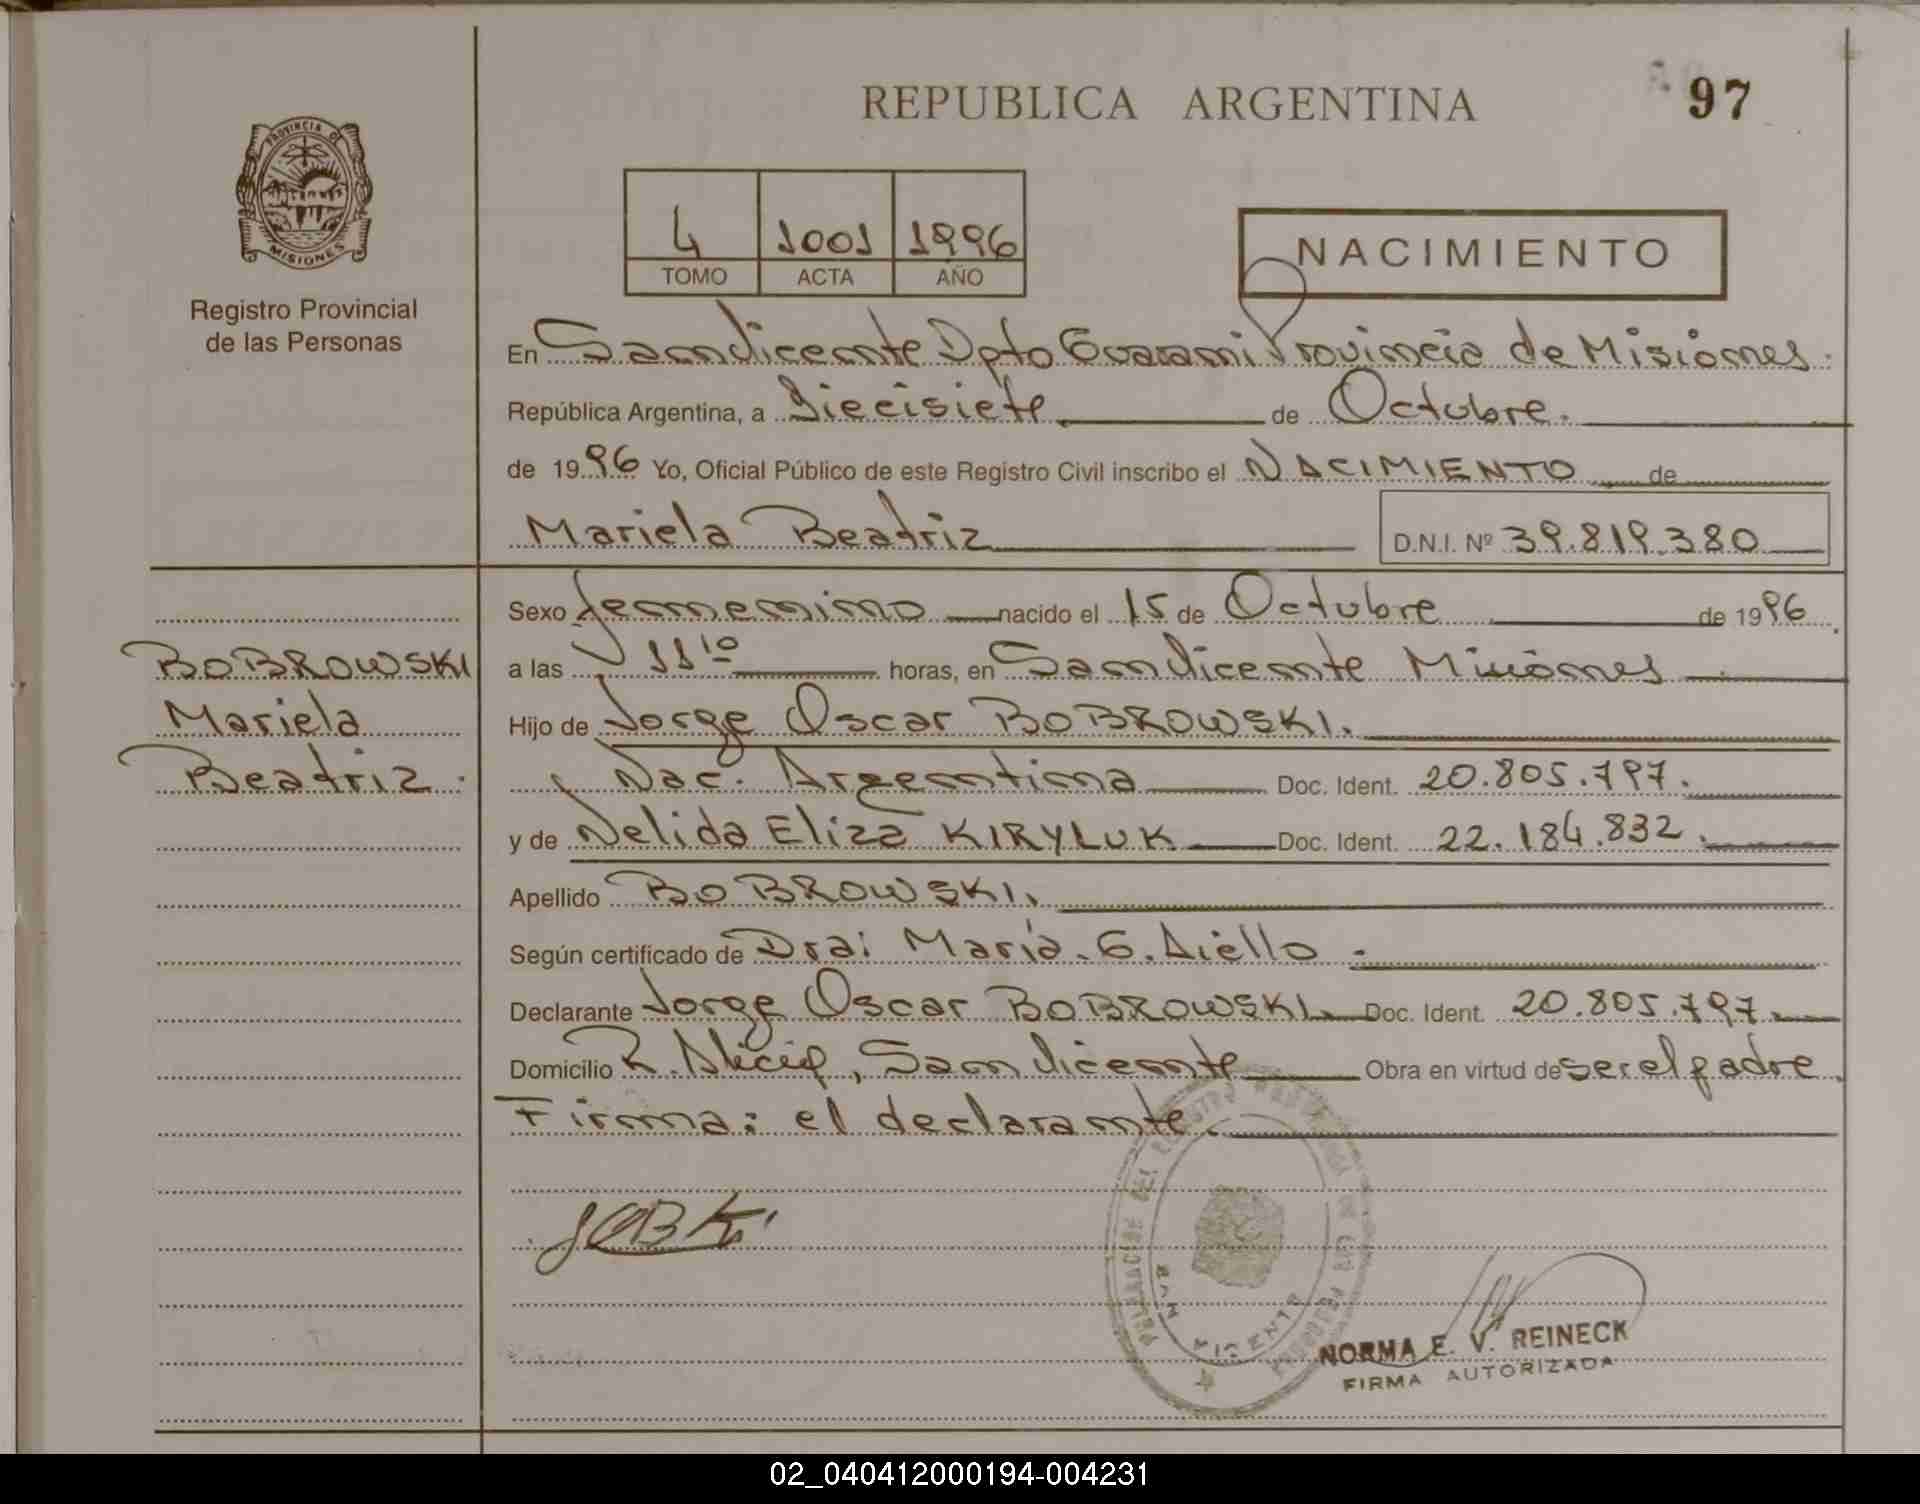 REPUBLICA ARGENTINA
97
PROVINCIA DE
MISIONES
Registro Provincial
de las Personas
4 1001 1996
TOMO ACTA AÑO
NACIMIENTO
En San Vicente Dpto Guarani Provincia de Misiones.
República Argentina, a Diecisiete de Octubre.
de 1996 Yo, Oficial Público de este Registro Civil inscribo el NACIMIENTO de
Mariela Beatriz D.N.I. Nº 39.819.380
Sexo femenino nacido el 15 de Octubre de 1996.
BOBROWSKI
Mariela
Beatriz.
a las 11 10 horas, en San Vicente Misiones
Hijo de Jorge Oscar BOBROWSKI.
Nac. Argentina Doc. Ident. 20.805.797.
y de Nelida Eliza KIRYLUK Doc. Ident. 22.184.832.
Apellido BOBROWSKI.
Según certificado de Dra: Maria. G. Aiello.
Declarante Jorge Oscar BOBROWSKI. Doc. Ident. 20.805.797.
Domicilio R. Alicia, San Vicente Obra en virtud de ser el padre.
Firma: el declarante.
SAN VICENTE
NORMA E. V. REINECK
FIRMA AUTORIZADA
02_040412000194-004231